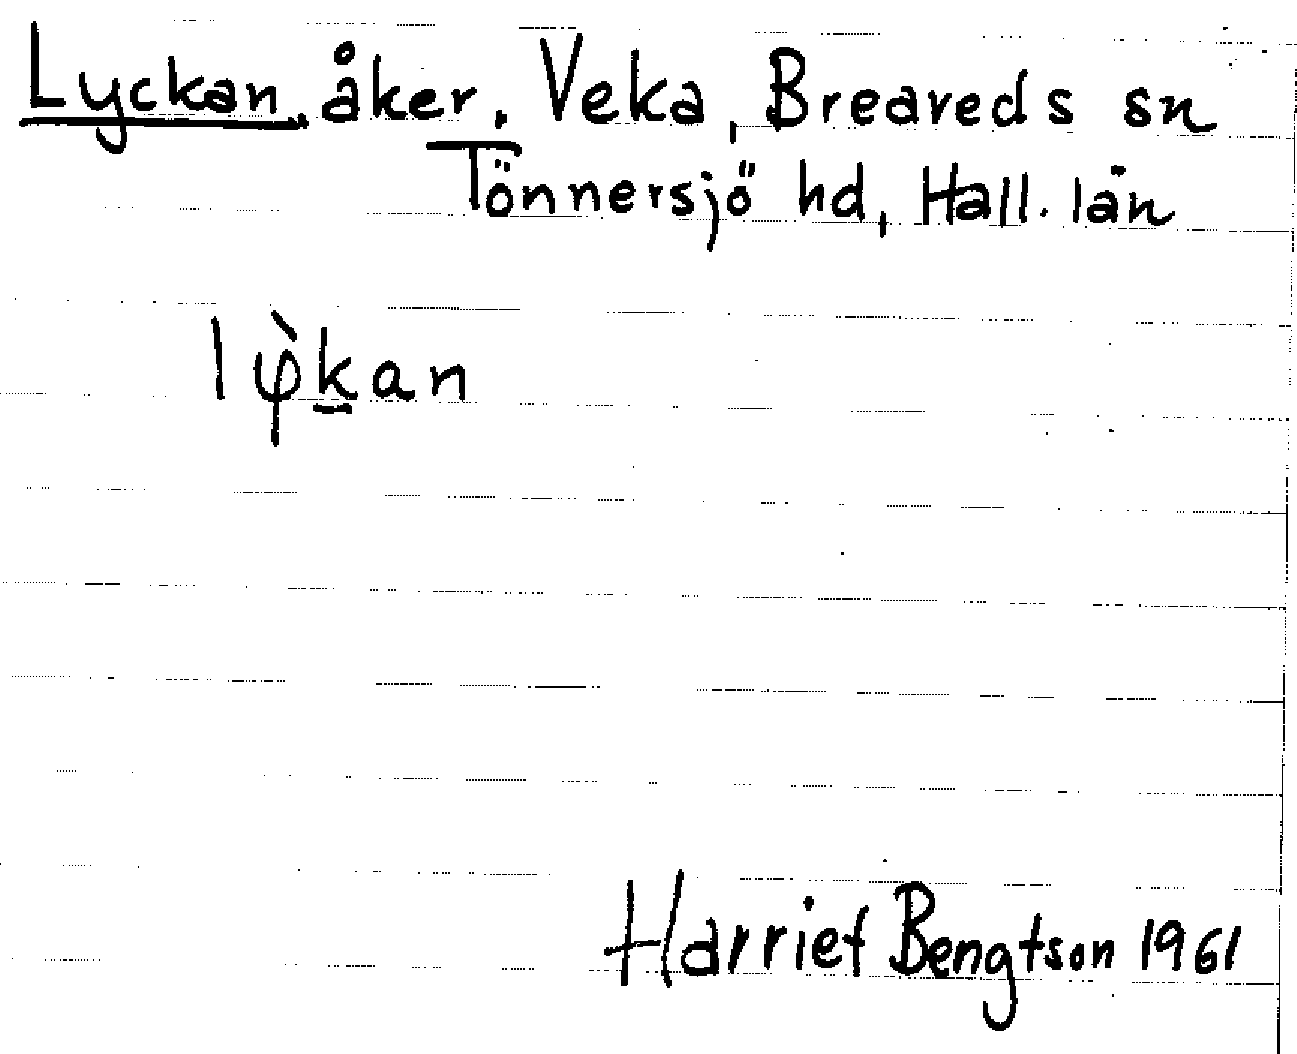 Lyckan, åker, Veka, Breareds sn
Tönnersjö hd, Hall. län
lφ̀k̲an
Harriet Bengtson 1961